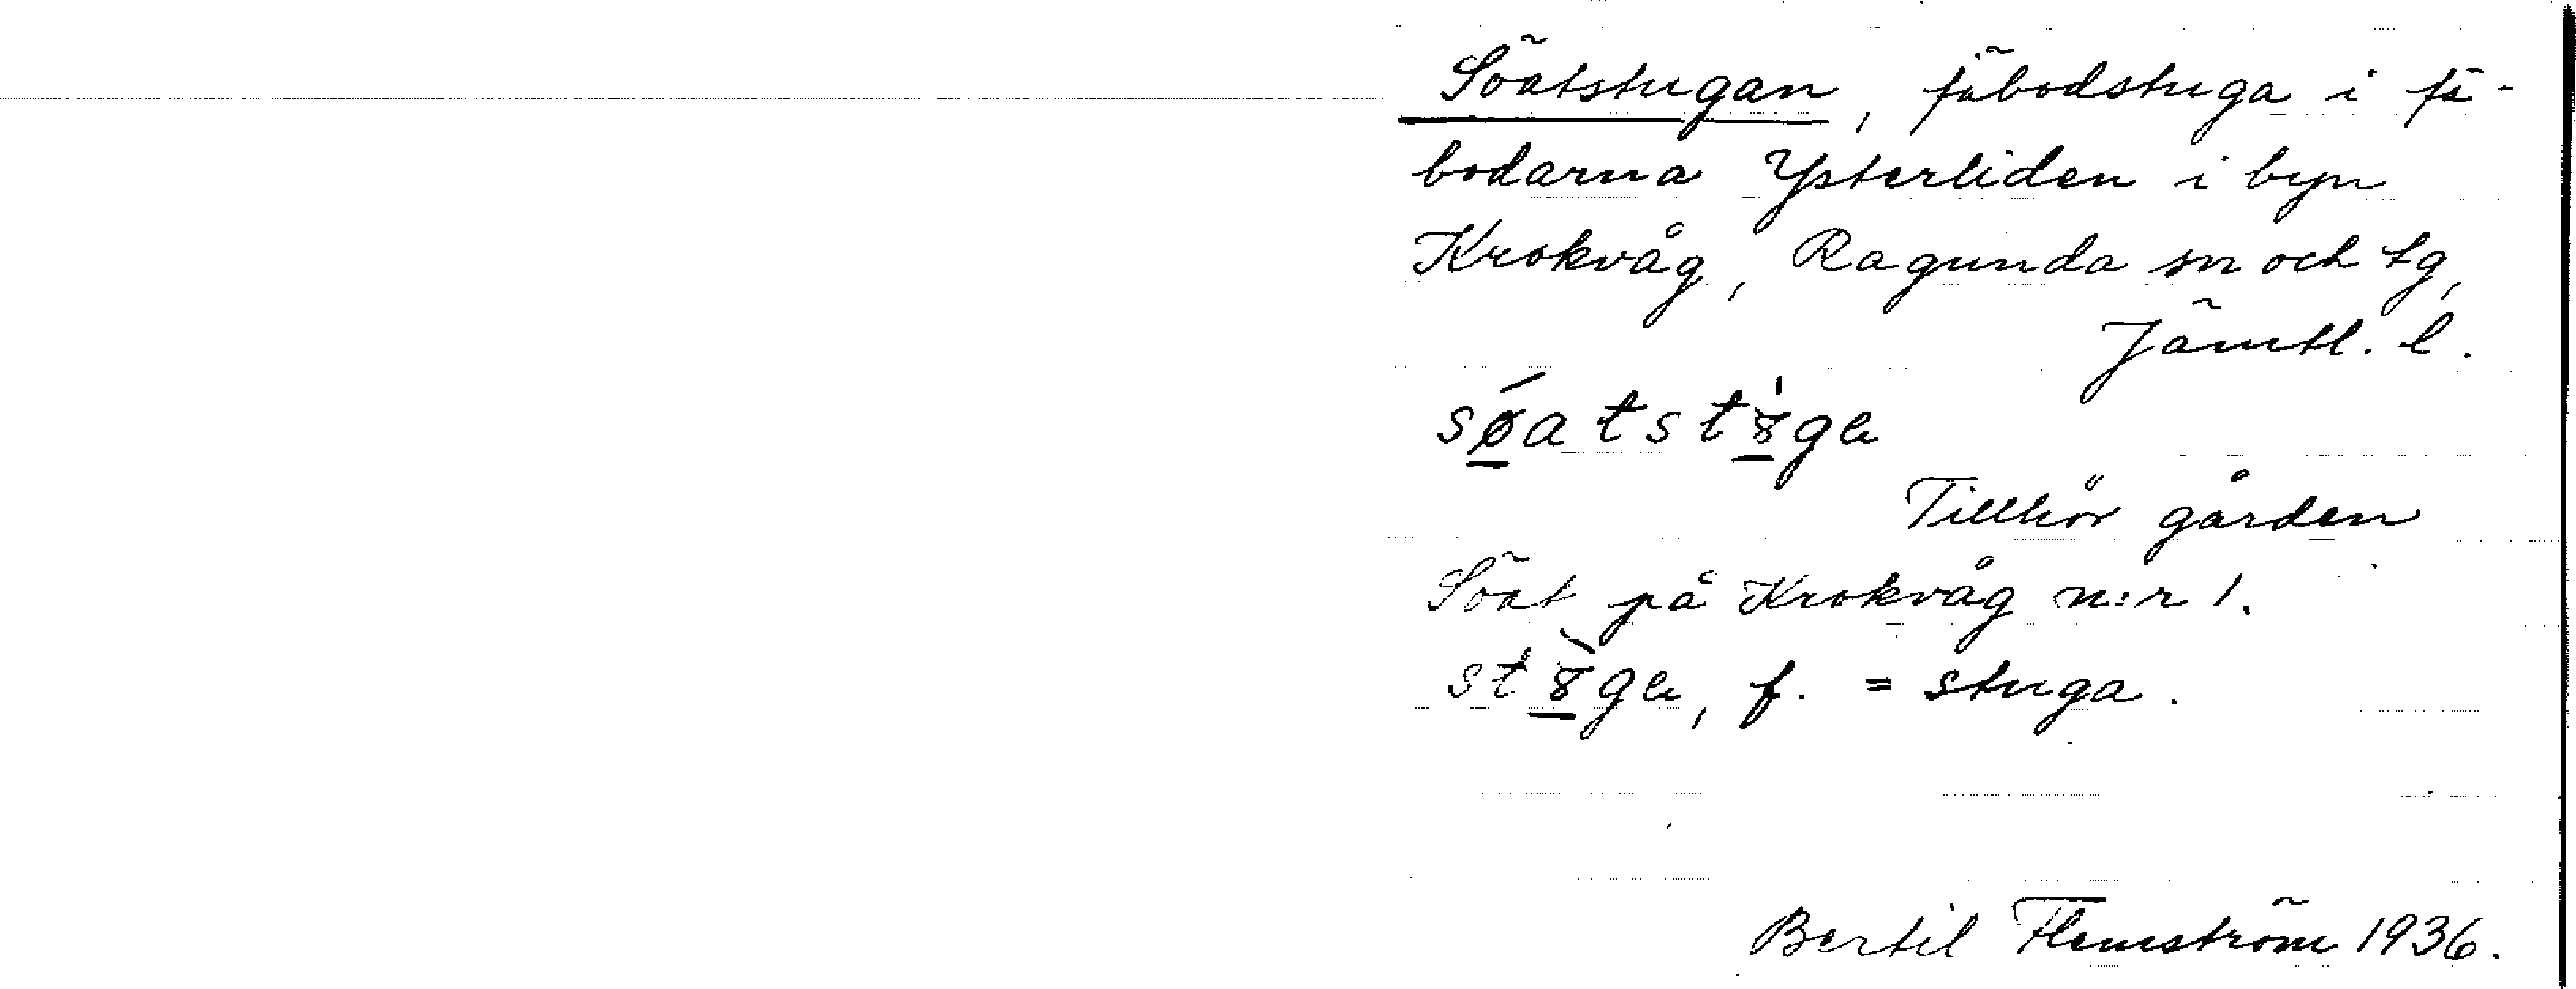 Söatstugan, fäbodstuga i fä-
bodarna Ysterliden i byn
Krokvåg, Ragunda sn och tg,
Jämtl. l.
sǿatst8̍ga
Tillhör gården
Söat på Krokvåg n:r 1.
st8̀ga, f. = stuga.
Bertil Flemström 1936.